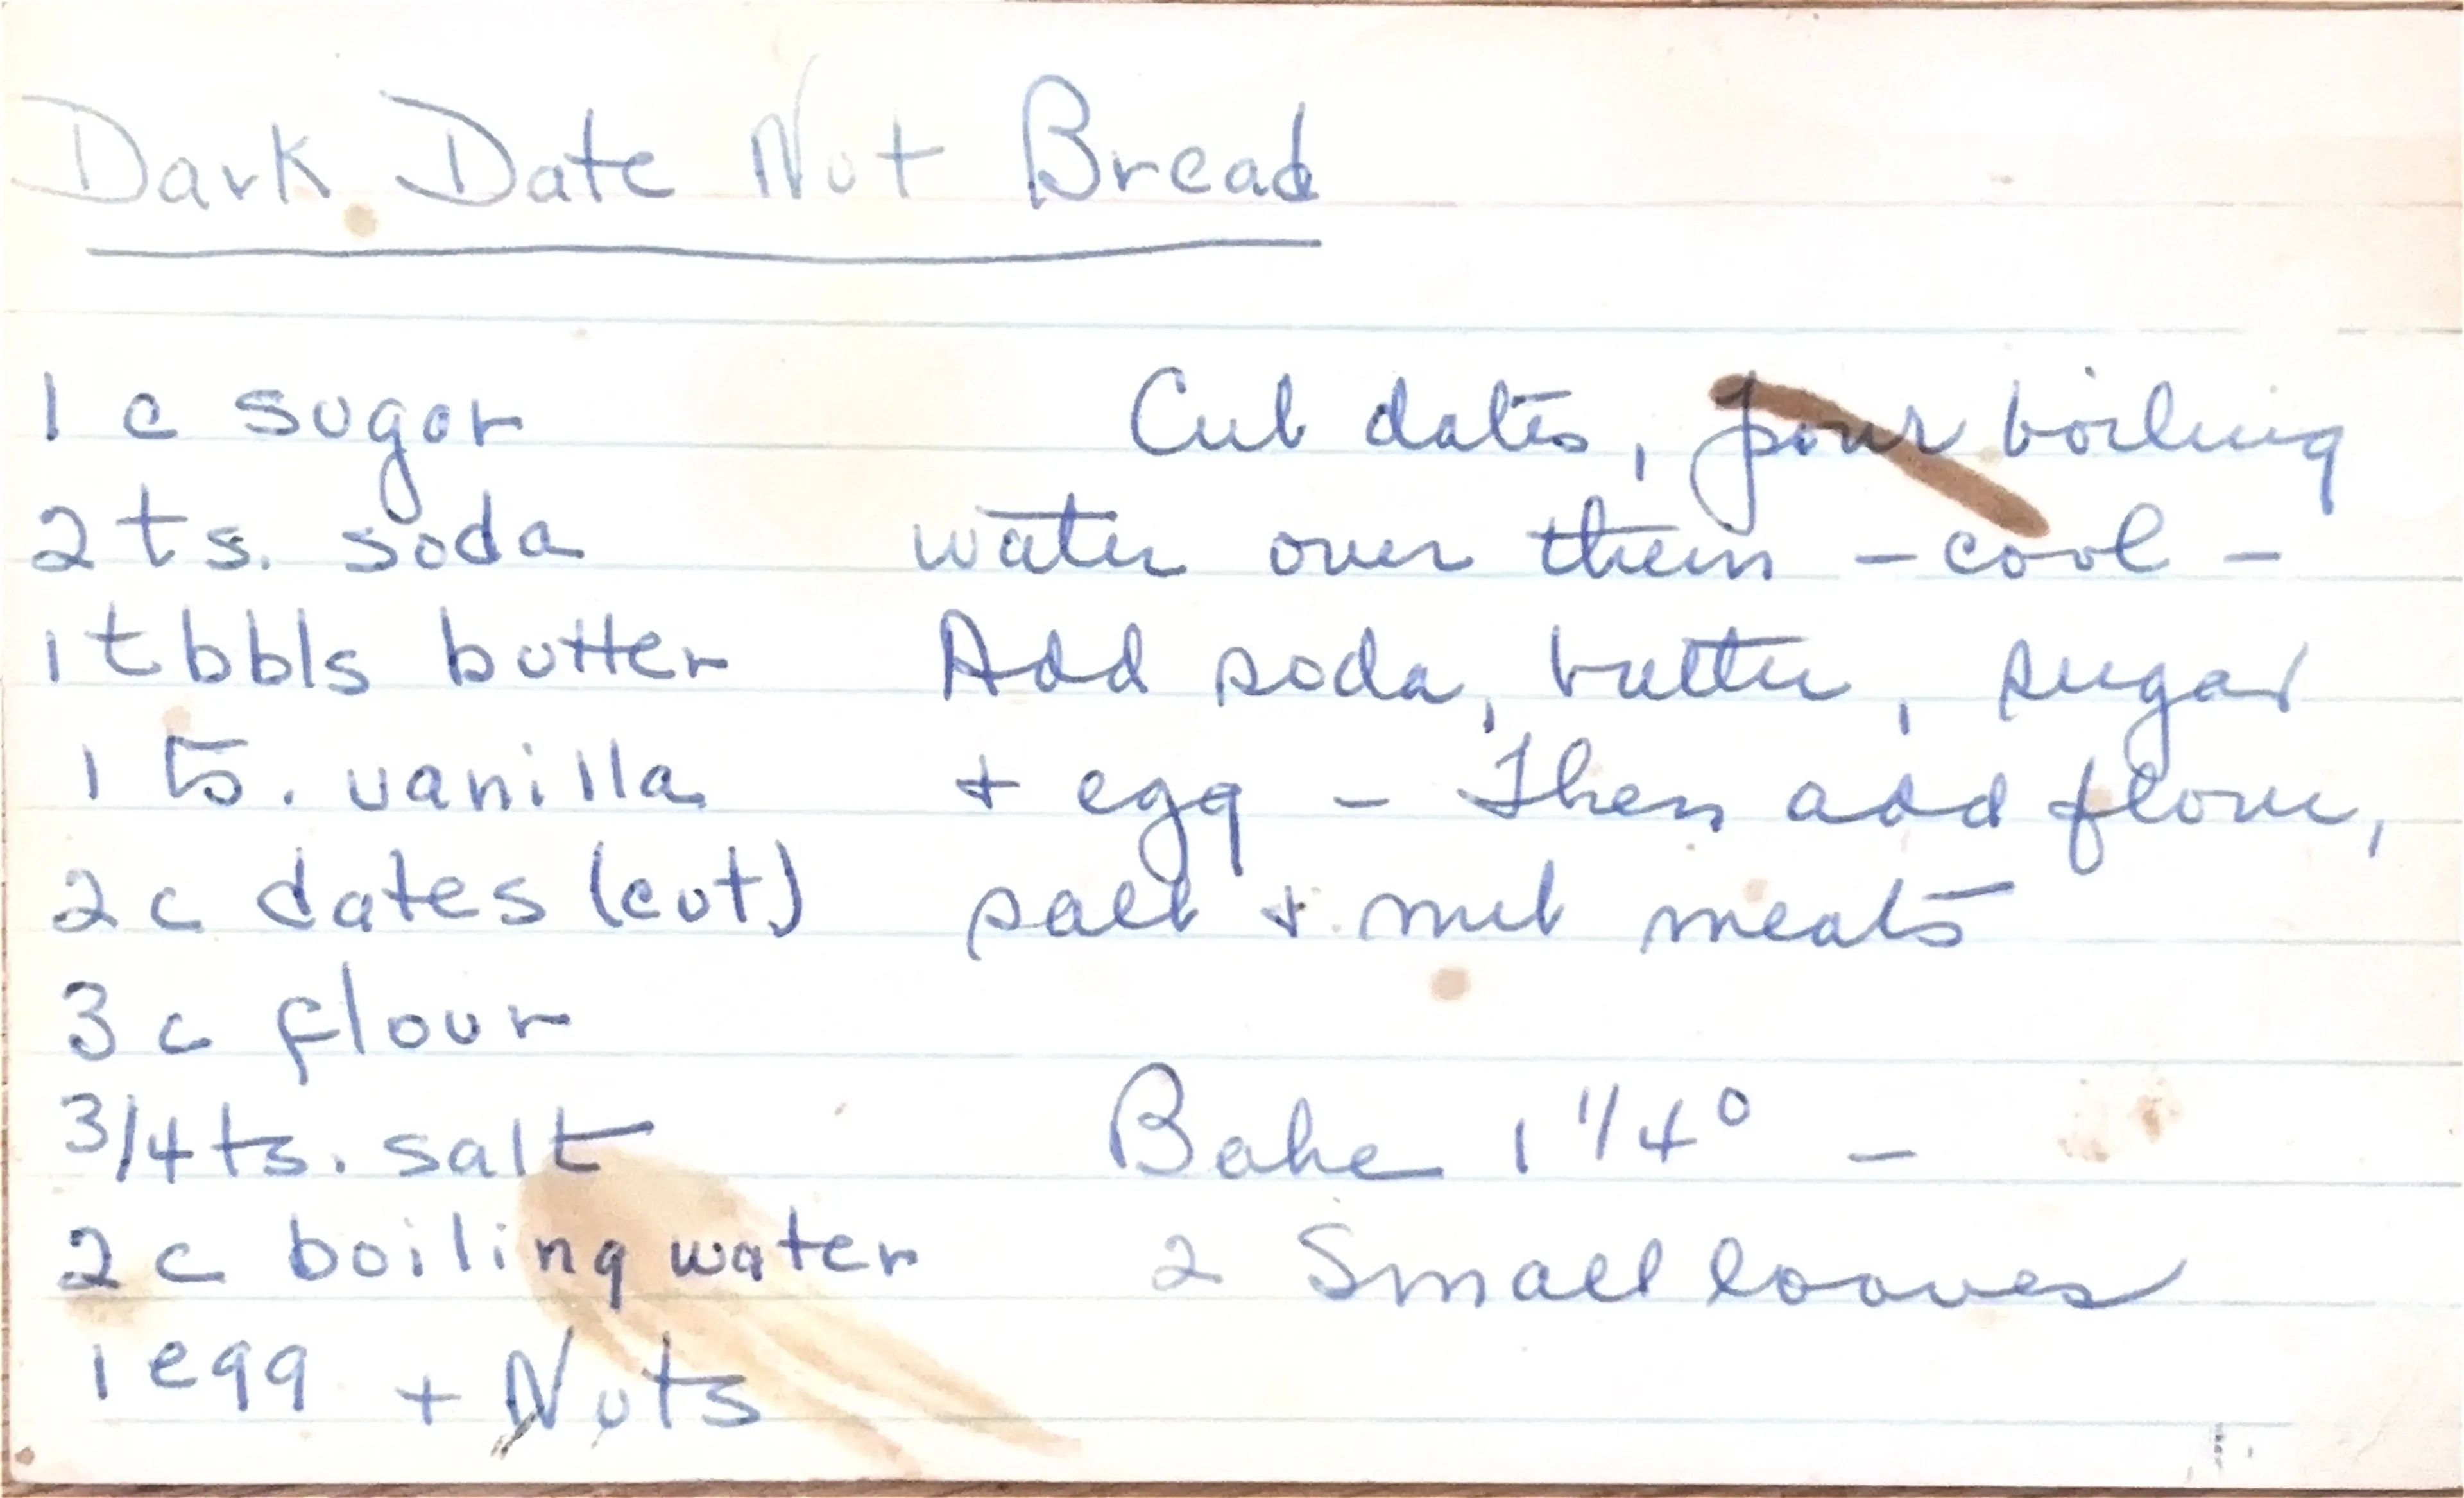 Dark Date Nut Bread
1 c sugar
2 ts. soda
1 tbbls butter
1 ts. vanilla
2 c dates (cut)
3 c flour
3/4 ts. salt
2 c boiling water
1 egg + Nuts
Cut dates, pour boiling
water over them - cool -
Add soda, butter, sugar
+ egg - Then add flour,
salt + nut meats
Bake 1 1/4° -
2 Small loaves